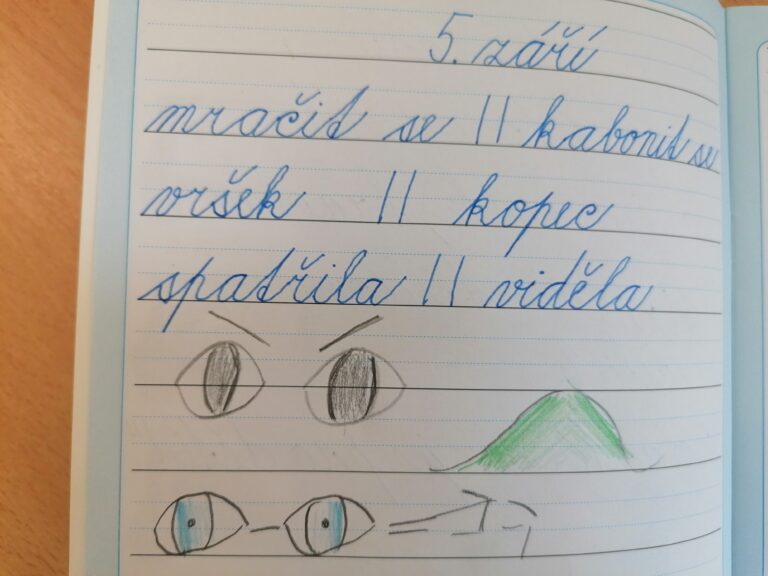 5. září
mračit se || kabonit se
vršek || kopec
spatřila || viděla